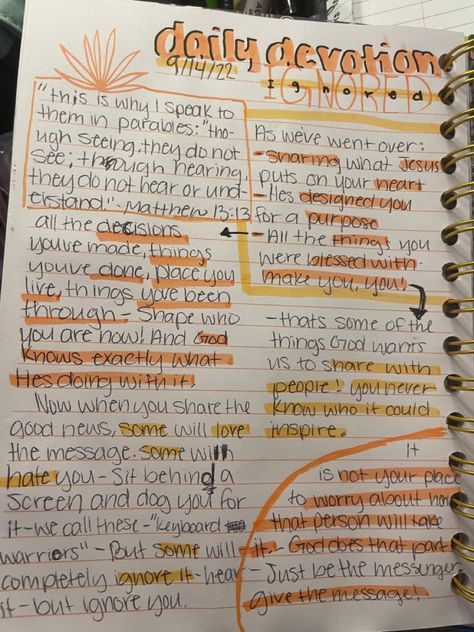 daily devotion
9/14/22
IGNORED
Ignored
"this is why I speak to
them in parables: "tho-
ugh seeing, they do not
see; though hearing,
they do not hear or und-
erstand." - Matthew 13:13
all the decisions
youve made, things
youve done, place you
live, things youve been
through - Shape who
you are now! And God
knows exactly what
Hes doing with it!
Now when you share the
good news, some will love
the message. some will
hate you - sit behind a
screen and dog you for
it - we call these - "keyboard
warriors" - But some will
completely ignore it - hear
it - but ignore you.
As we've went over:
- sharing what Jesus
puts on your heart
- Hes designed you
for a purpose
- All the things you
were blessed with
make you, you!
- thats some of the
things God wants
us to share with
people! you never
know who it could
inspire.
It
is not your place
to worry about how
that person will take
it. - God does that part
- Just be the messinger
give the message!